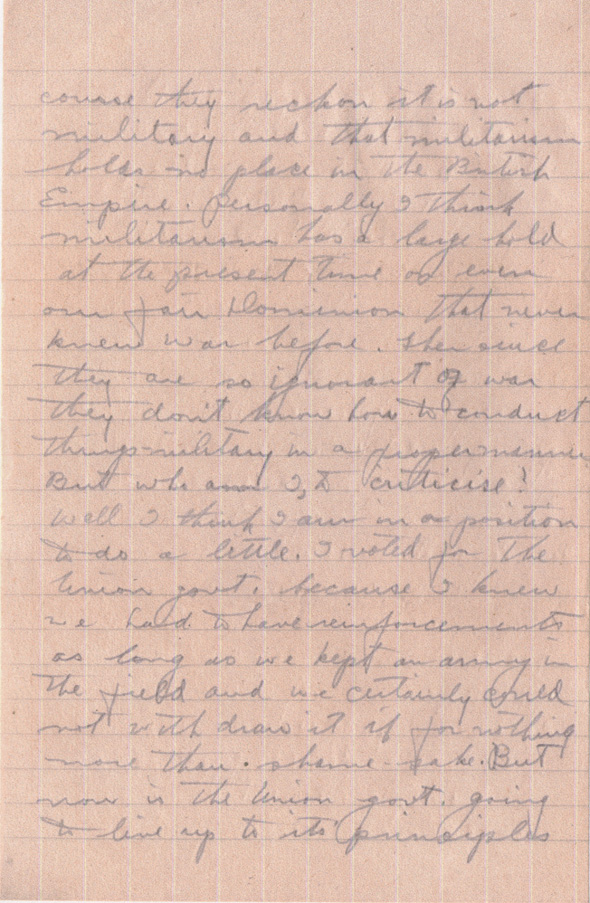 course they reckon it is not
military and that militarism
holds no place in the British
Empire. Personally I think
militarism has a large hold
at the present time on even
our fair Dominion that never
knew war before. Then since
they are so ignorant of war
they don't know how to conduct
things military in a proper manner
But who am I, to criticise!
Well I think I am in a position
to do a little. I voted for the
Union govt. because I knew
we had to have reinforcements
as long as we kept an army in
the field and we certainly could
not with draw it if for nothing
more than shame-sake. But
now is the Union govt. going
to live up to its principles